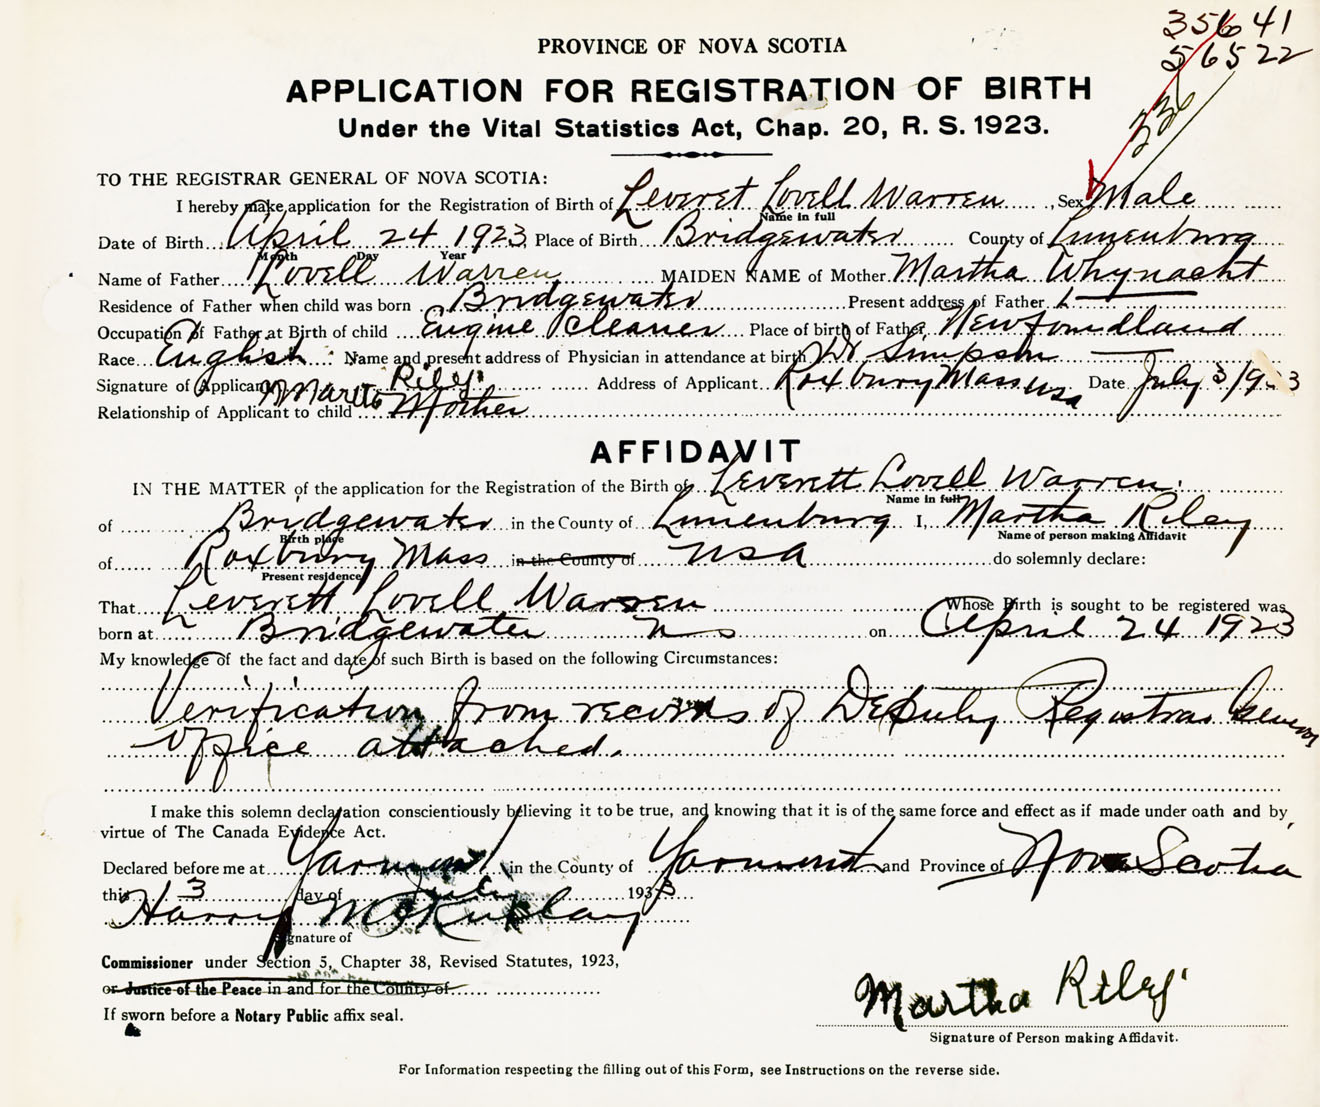 35641
56522
336
PROVINCE OF NOVA SCOTIA
APPLICATION FOR REGISTRATION OF BIRTH
Under the Vital Statistics Act, Chap. 20, R. S. 1923.
TO THE REGISTRAR GENERAL OF NOVA SCOTIA:
I hereby make application for the Registration of Birth of Leveret Lovell Warren, Sex Male
Name in full
Date of Birth April 24 1923 Place of Birth Bridgewater County of Lunenburg
Month Day Year
Name of Father Lovell Warren MAIDEN NAME of Mother Martha Whynacht
Residence of Father when child was born Bridgewater Present address of Father
Occupation of Father at Birth of child Engine Cleaner Place of birth of Father Newfoundland
Race English Name and present address of Physician in attendance at birth Dr Simpson
Signature of Applicant Riley Address of Applicant Roxbury Mass USA Date July 3/
Relationship of Applicant to child Mother
AFFIDAVIT
IN THE MATTER of the application for the Registration of the Birth of Leverett Lovell Warren.
Name in full
of Bridgewater in the County of Lunenburg I, Martha Riley
Birth place Name of person making Affidavit
of Roxbury Mass in the County of USA do solemnly declare:
Present residence
That Leverett Lovell Warren Whose Birth is sought to be registered was
born at Bridgewater NS on April 24 1923
My knowledge of the fact and date of such Birth is based on the following Circumstances:
Verification from records of Deputy Registrar General
office attached.
I make this solemn declaration conscientiously believing it to be true, and knowing that it is of the same force and effect as if made under oath and by
virtue of The Canada Evidence Act.
Declared before me at Yarmouth in the County of Yarmouth and Province of Nova Scotia
this 13 day of July 193
Harry
Signature of
Commissioner under Section 5, Chapter 38, Revised Statutes, 1923,
or Justice of the Peace in and for the County of
If sworn before a Notary Public affix seal.
Martha Riley
Signature of Person making Affidavit.
For Information respecting the filling out of this Form, see Instructions on the reverse side.